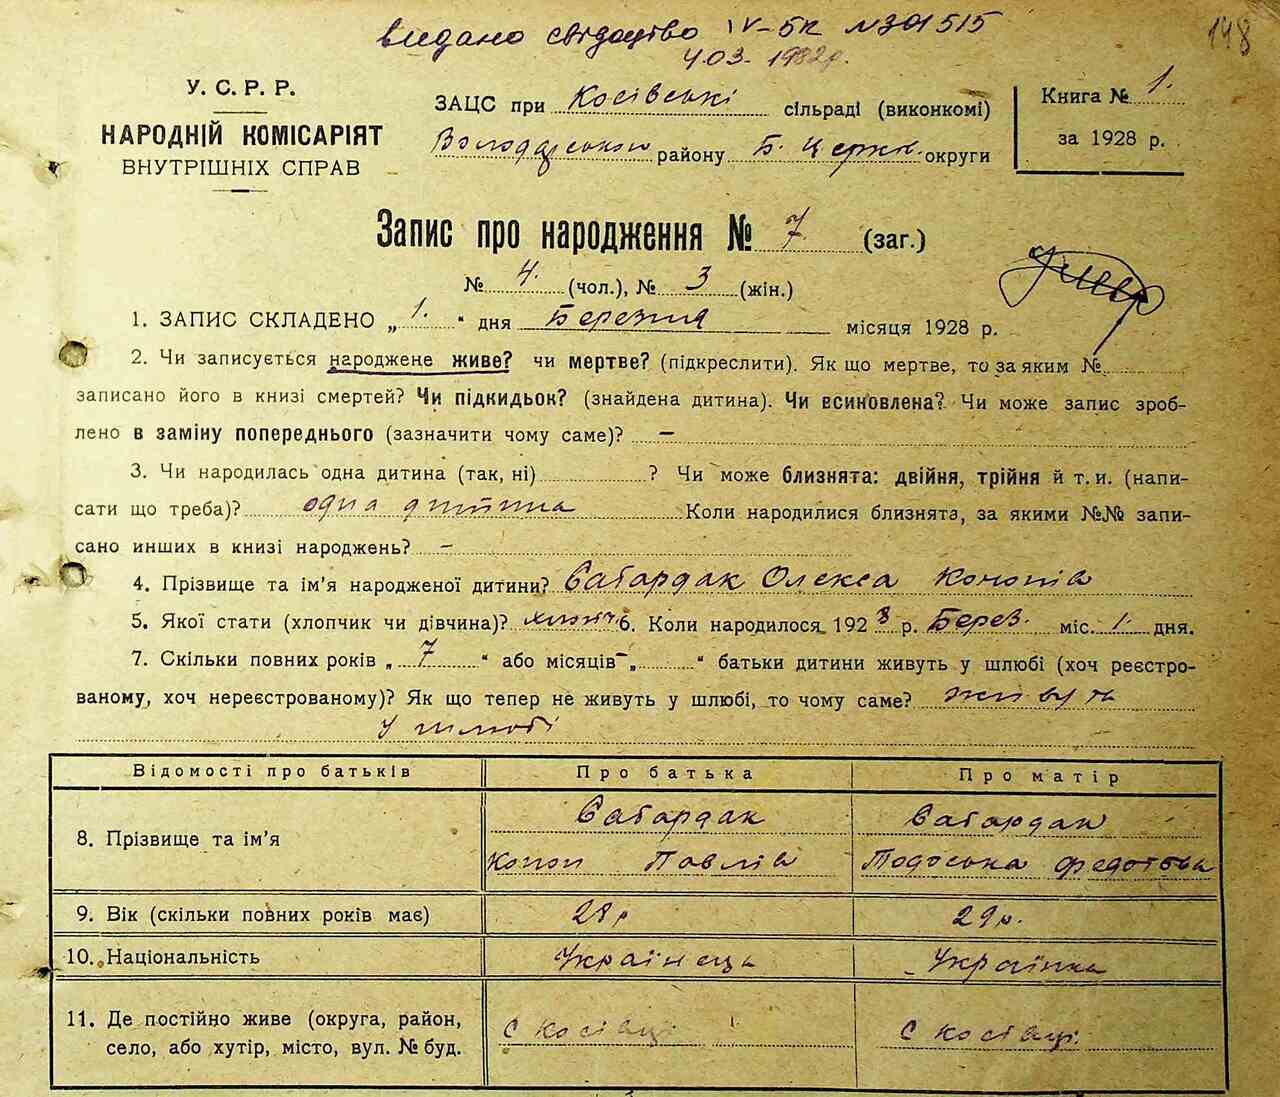 видано свідоцтво IV-БК №301515
4.03. 1982р.
148
У. С. Р. Р.
НАРОДНІЙ КОМІСАРІЯТ
ВНУТРІШНІХ СПРАВ
ЗАЦС при Косівські сільраді (виконкомі)
Володарського району Б. Церкк. округи
Книга № 1.
за 1928 р.
Запис про народження № 7 (заг.)
№ 4. (чол.), № 3 (жін.)
1. ЗАПИС СКЛАДЕНО „ 1. “ дня Березня місяця 1928 р.
2. Чи записується народжене живе? чи мертве? (підкреслити). Як що мертве, то за яким №
записано його в книзі смертей? Чи підкидьок? (знайдена дитина). Чи всиновлена? Чи може запис зроб-
лено в заміну попереднього (зазначити чому саме)? —
3. Чи народилась одна дитина (так, ні) ? Чи може близнята: двійня, трійня й т. и. (напи-
сати що треба)? одна дитина Коли народилися близнята, за якими №№ запи-
сано инших в книзі народжень? —
4. Прізвище та ім'я народженої дитини? Сабардак Олекса Кононів
5. Якої стати (хлопчик чи дівчина)? хлопч. 6. Коли народилося 1928 р. Берез. міс. 1. дня.
7. Скільки повних років „ 7 “ або місяців „ “ батьки дитини живуть у шлюбі (хоч реєстро-
ваному, хоч нереєстрованому)? Як що тепер не живуть у шлюбі, то чому саме? живуть
у шлюбі
Відомості про батьків Про батька Про матір
8. Прізвище та ім'я Сабардак Сабардак
Конон Павлів Тодоська Федотова
9. Вік (скільки повних років має) 28 р 29 р.
10. Національність Українець Українка
11. Де постійно живе (округа, район, с Косівці с Косівці
село, або хутір, місто, вул. № буд.